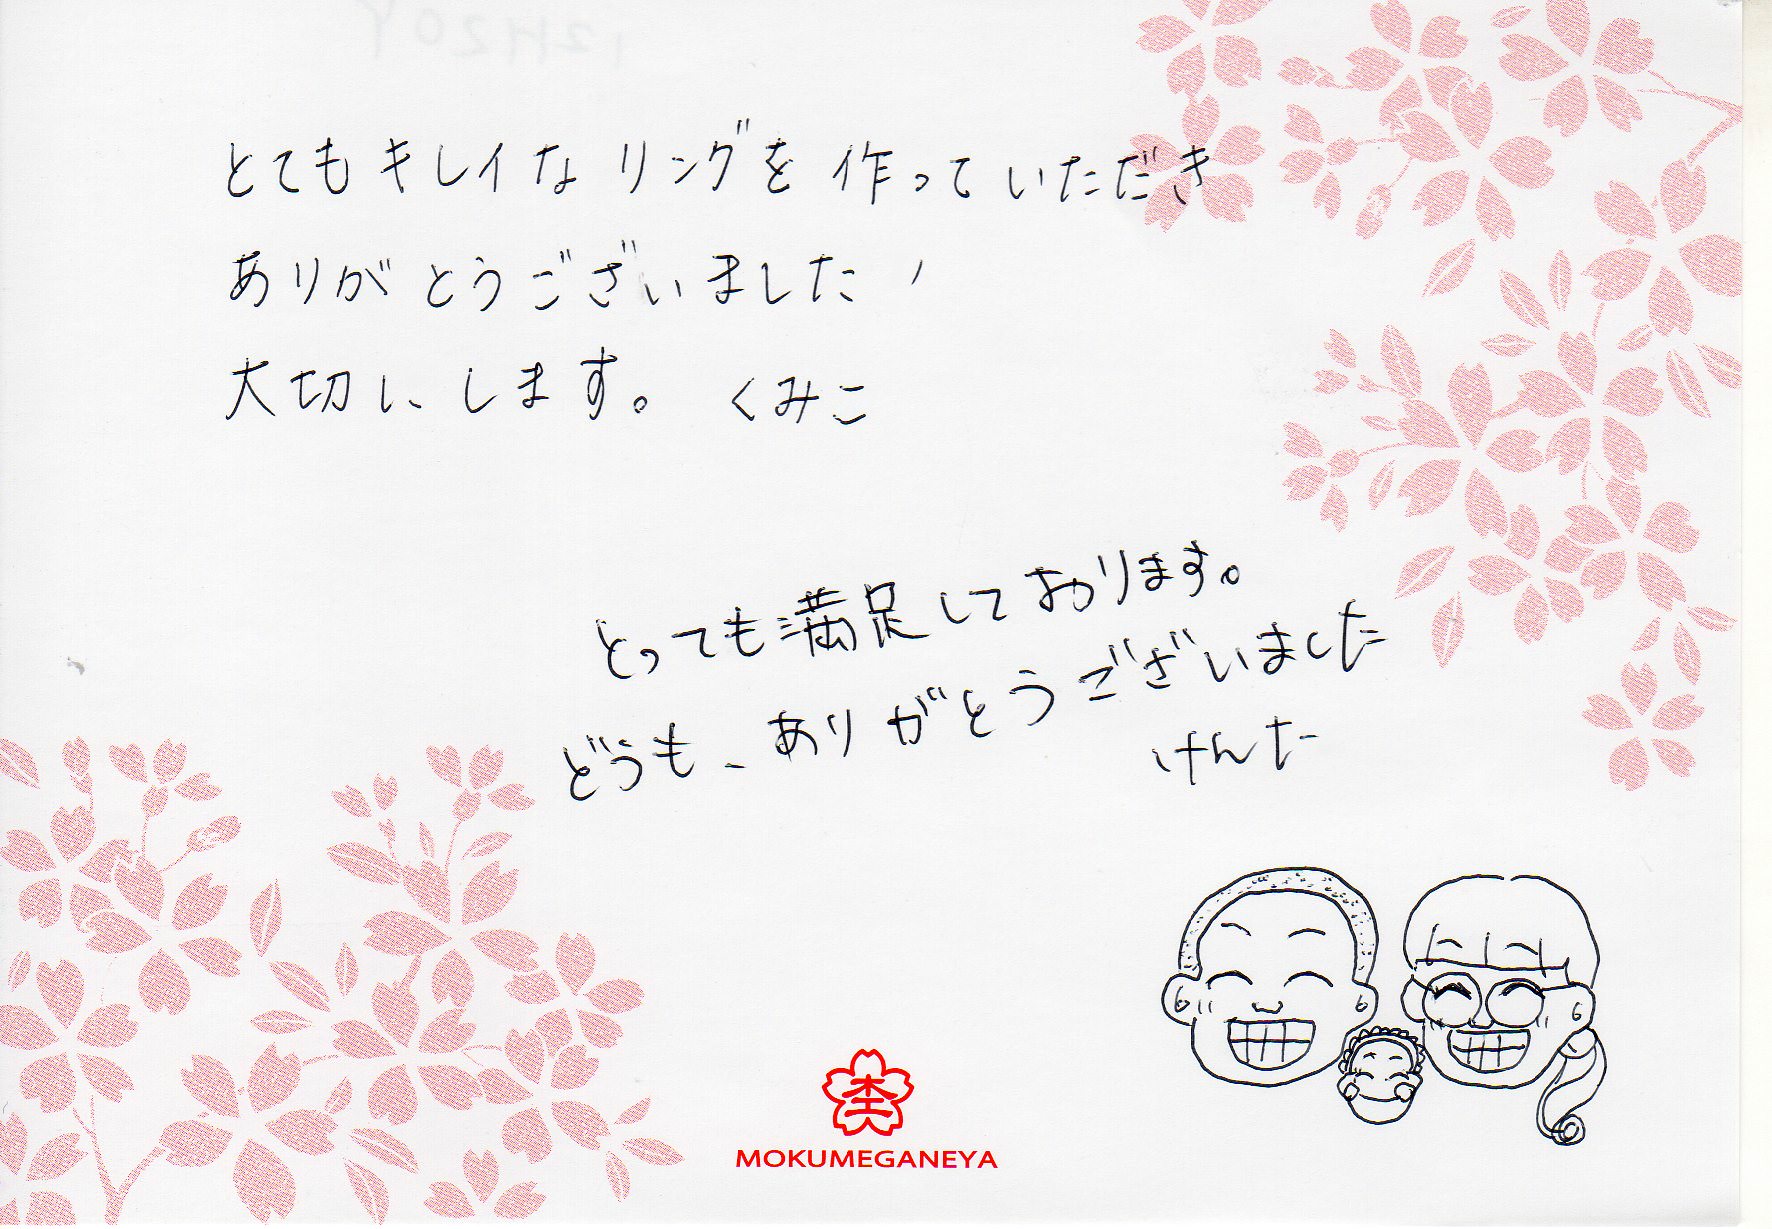 とてもキレイなリングを作っていただき
ありがとうございました
大切にします。 くみこ
とっても満足しております。
どうも、ありがとうございました
けんた
MOKUMEGANEYA